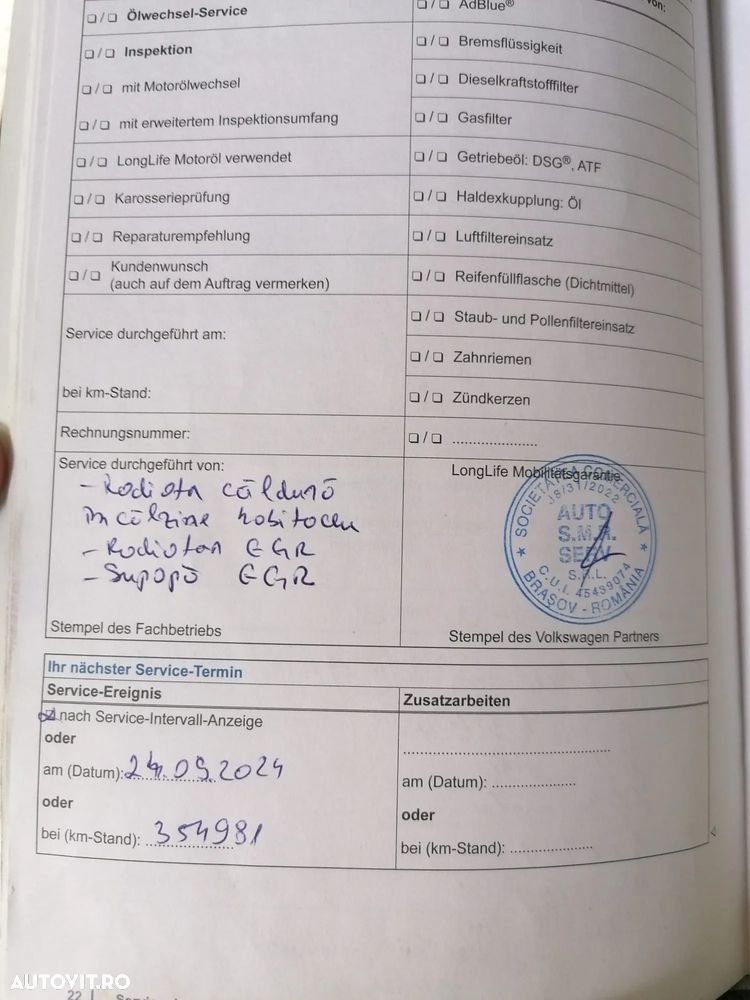 ❏ / ❏ Ölwechsel-Service
❏ / ❏ Inspektion
❏ / ❏ mit Motorölwechsel
❏ / ❏ mit erweitertem Inspektionsumfang
❏ / ❏ LongLife Motoröl verwendet
❏ / ❏ Karosserieprüfung
❏ / ❏ Reparaturempfehlung
❏ / ❏ Kundenwunsch
(auch auf dem Auftrag vermerken)
Service durchgeführt am:
bei km-Stand:
Rechnungsnummer:
von:
❏ / ❏ AdBlue®
❏ / ❏ Bremsflüssigkeit
❏ / ❏ Dieselkraftstofffilter
❏ / ❏ Gasfilter
❏ / ❏ Getriebeöl: DSG®, ATF
❏ / ❏ Haldexkupplung: Öl
❏ / ❏ Luftfiltereinsatz
❏ / ❏ Reifenfüllflasche (Dichtmittel)
❏ / ❏ Staub- und Pollenfiltereinsatz
❏ / ❏ Zahnriemen
❏ / ❏ Zündkerzen
❏ / ❏ .....................
Service durchgeführt von:
- Radiator căldură
încălzire habitaclu
- Radiator EGR
- Supapă EGR
Stempel des Fachbetriebs
LongLife Mobilitätsgarantie:
SOCIETATEA COMERCIALĂ
J8/31/2022
AUTO
S.M.R.
SERV
S.R.L.
C.U.I. 45439074
BRAȘOV - ROMÂNIA
Stempel des Volkswagen Partners
Ihr nächster Service-Termin
Service-Ereignis
☑ nach Service-Intervall-Anzeige
oder
am (Datum): 24.09.2024
oder
bei (km-Stand): 354981
Zusatzarbeiten
am (Datum): .....................
oder
bei (km-Stand): .....................
22
AUTOVIT.RO